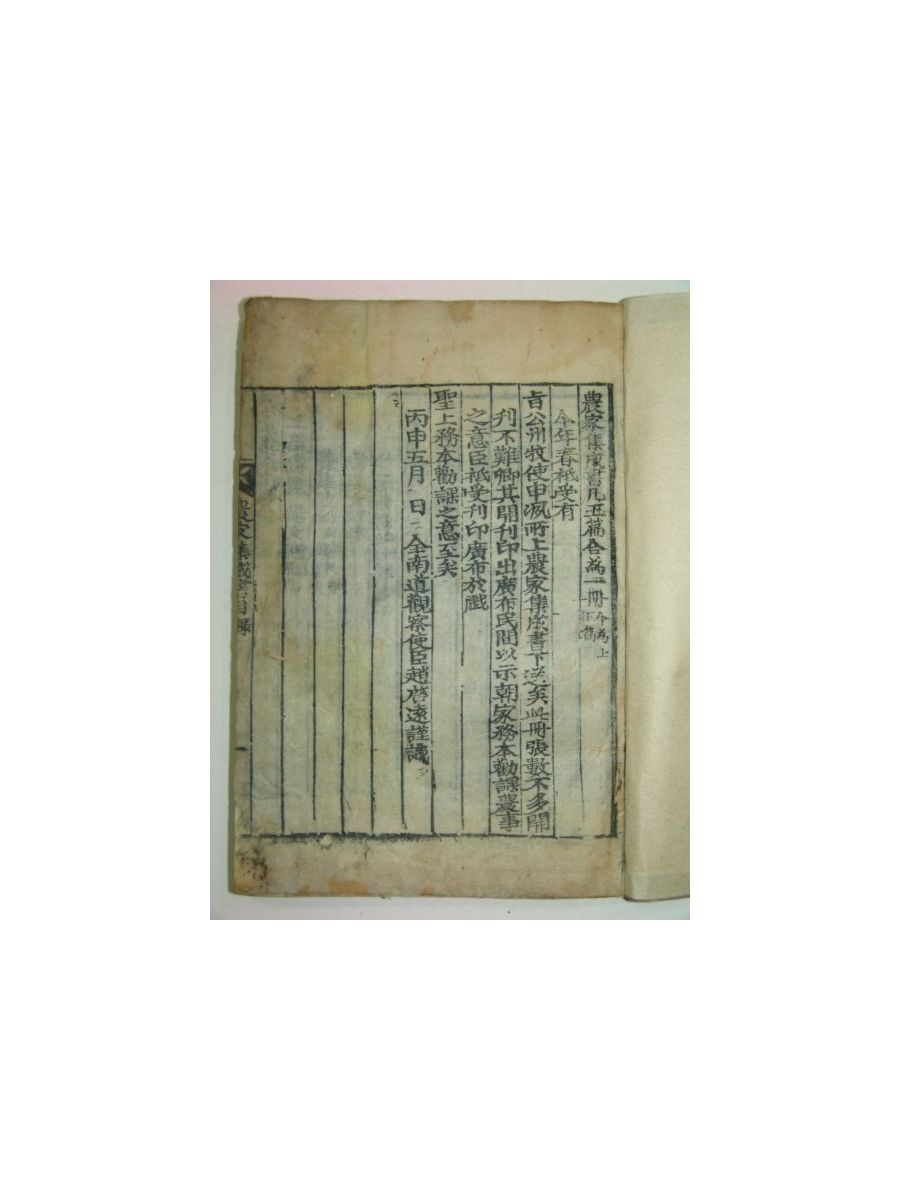 農家集成書凡五篇合爲一冊
今爲上
五篇
今年春祗受有
旨公州牧使申洬所上農家集成書下送矣此冊張數不多開
刊不難卿其開刊印出廣布民間以示朝家務本勸課農事
之意臣祗受刊印廣布於戱
聖上務本勸課之意至矣
丙申五月 日 全南道觀察使臣趙啓遠謹識
農家集成書目錄 一